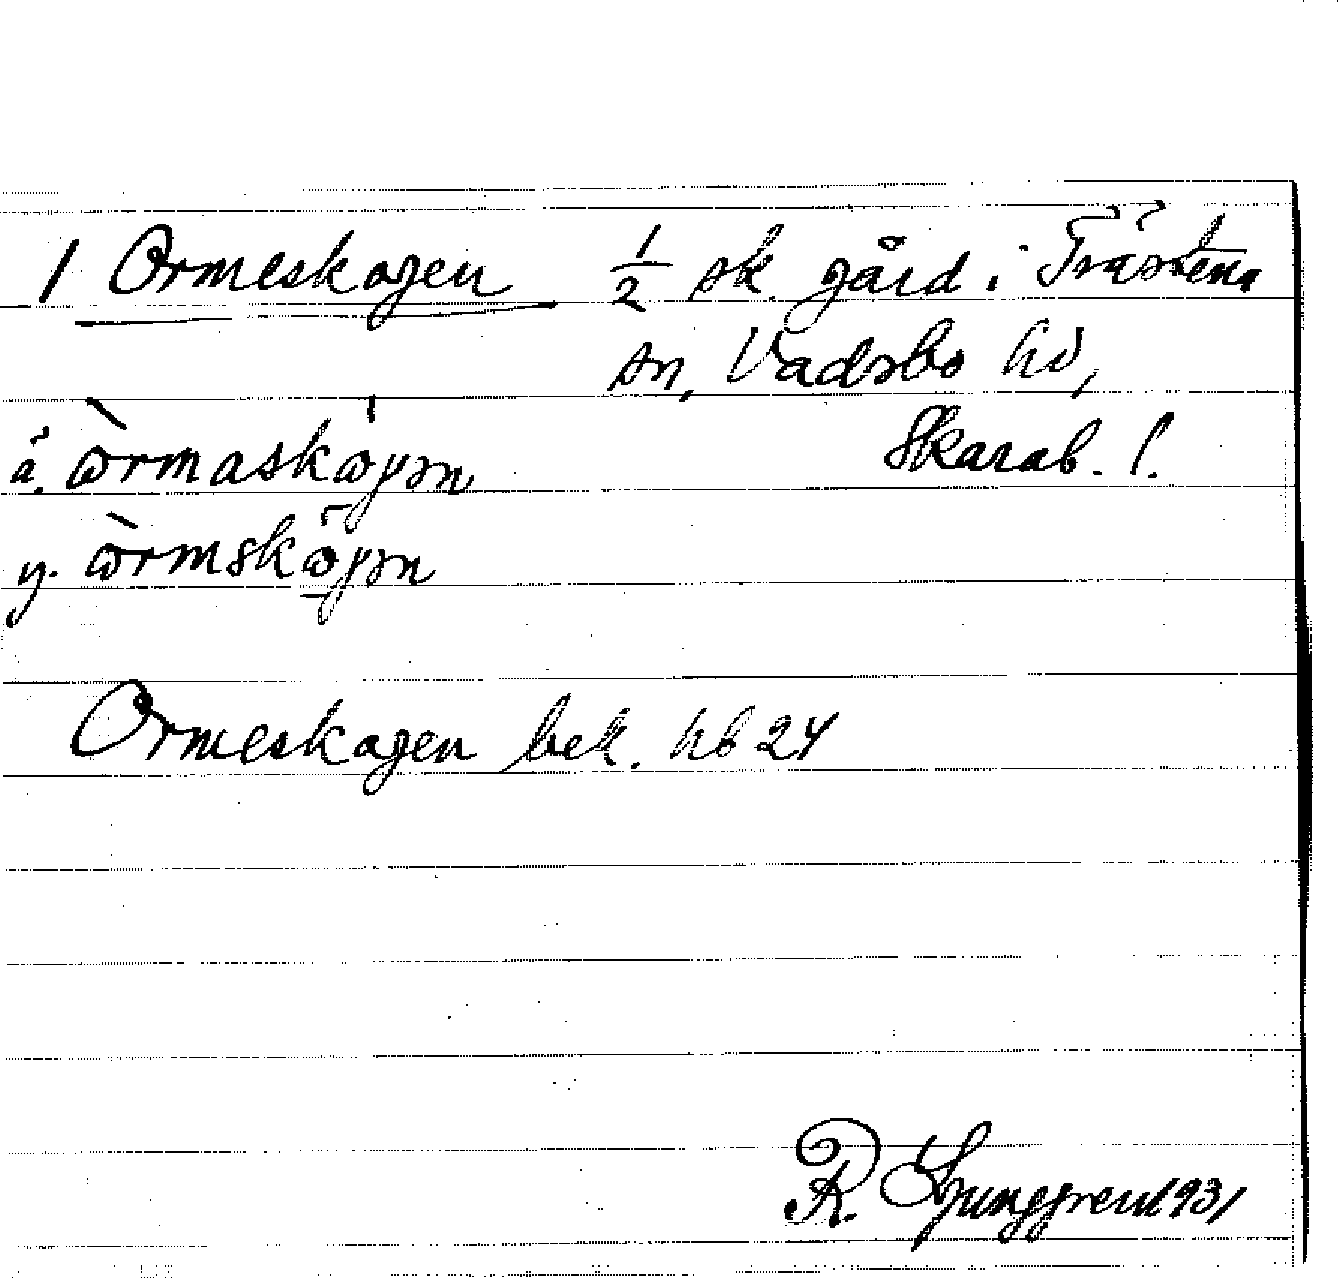 1 Ormeskogen 1/2 sk. gård i Trästena
sn, Vadsbo hd,
Skarab. l.
ä. òrmaskoɡən
y. òrmskoɡən
Ormeskogen bek. hb 24
R. Ljunggren 1931